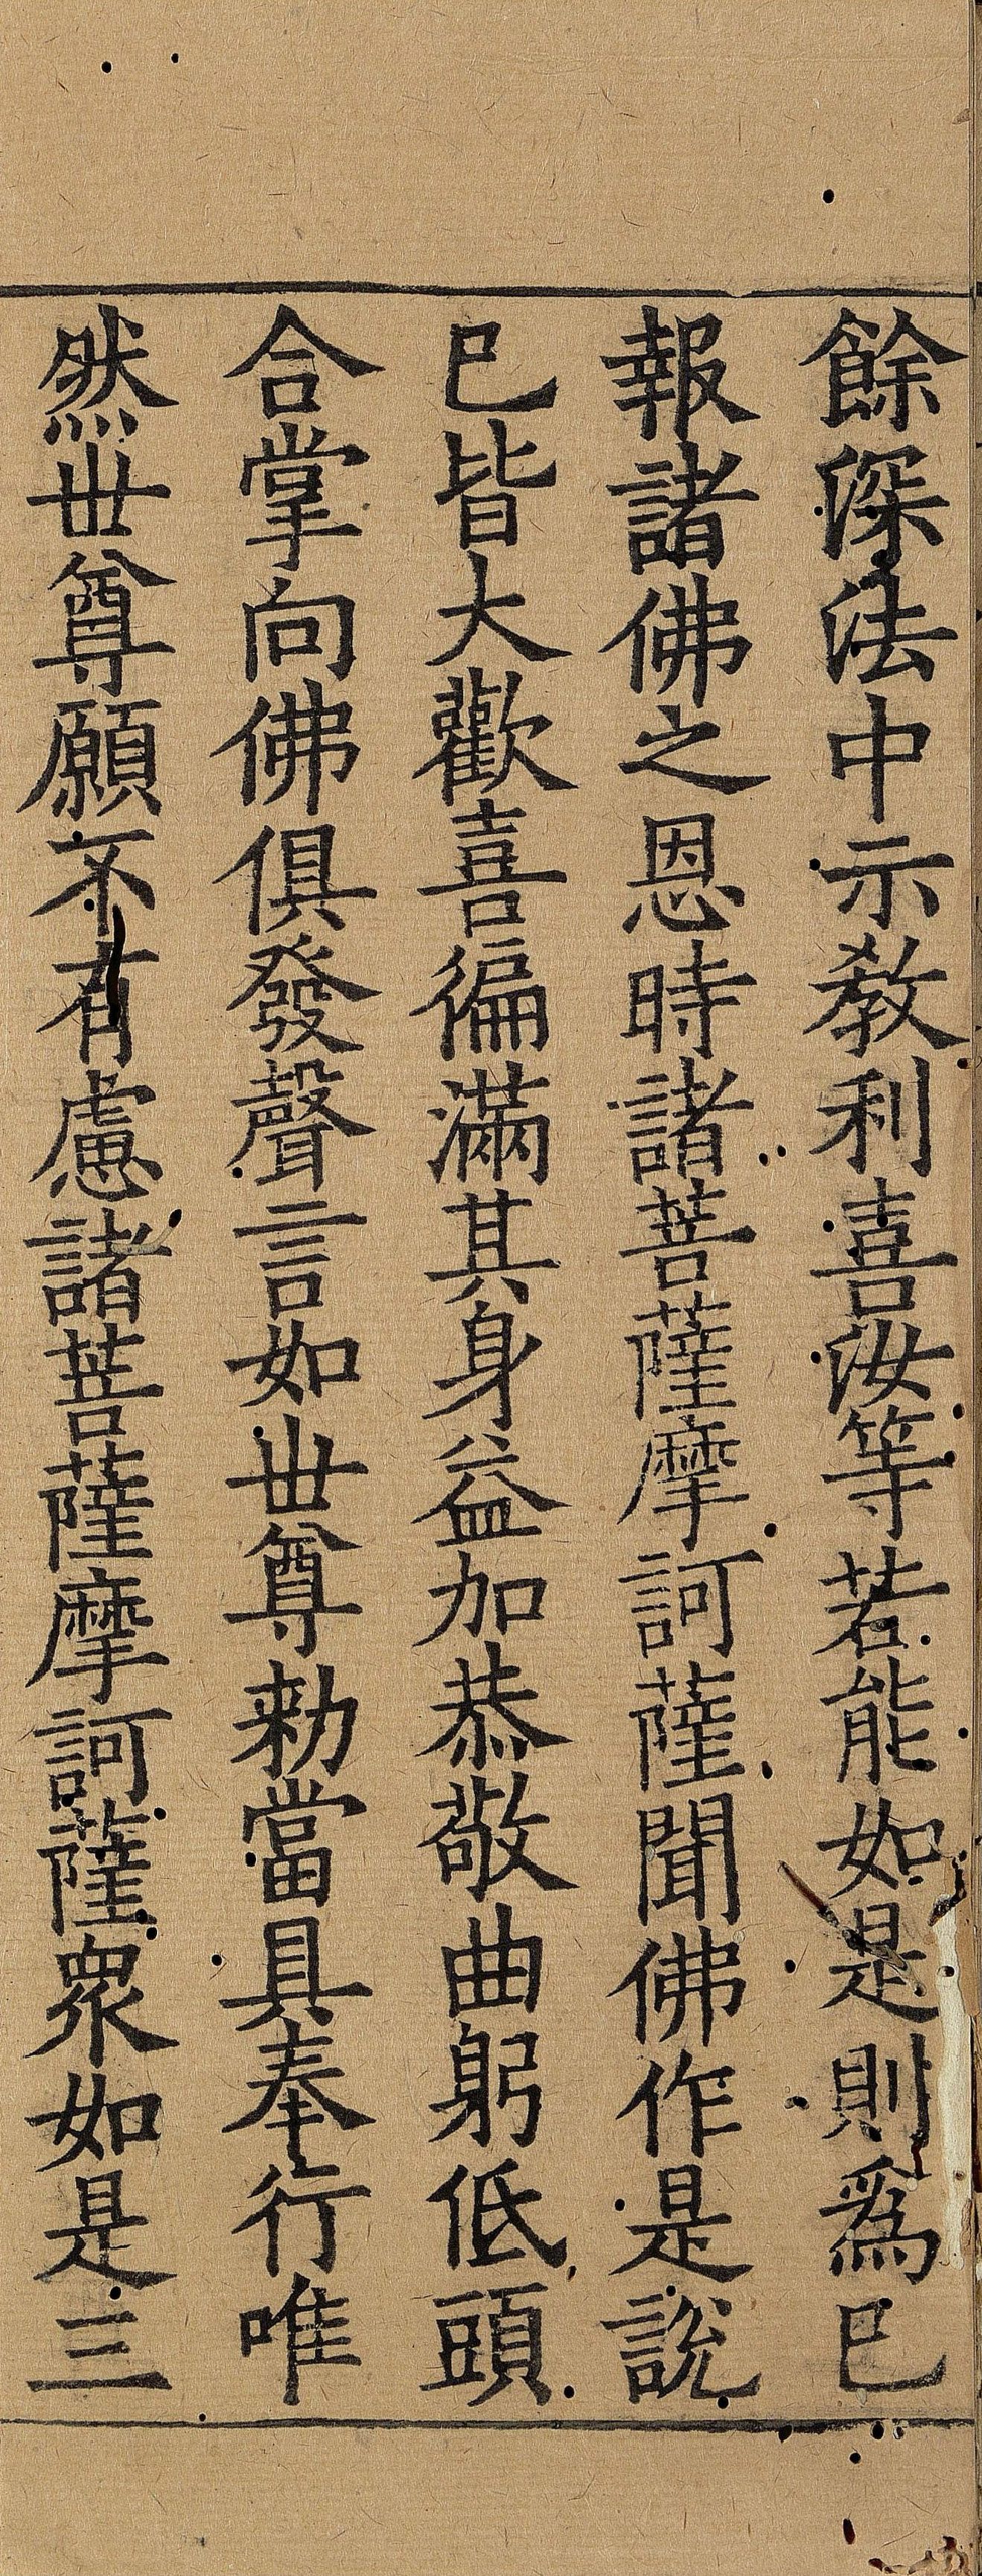 餘深法中示教利喜汝等若能如是則爲已
報諸佛之恩時諸菩薩摩訶薩聞佛作是説
已皆大歡喜徧滿其身益加恭敬曲躬低頭
合掌向佛俱發聲言如世尊勑當具奉行唯
然世尊願不有慮諸菩薩摩訶薩衆如是三